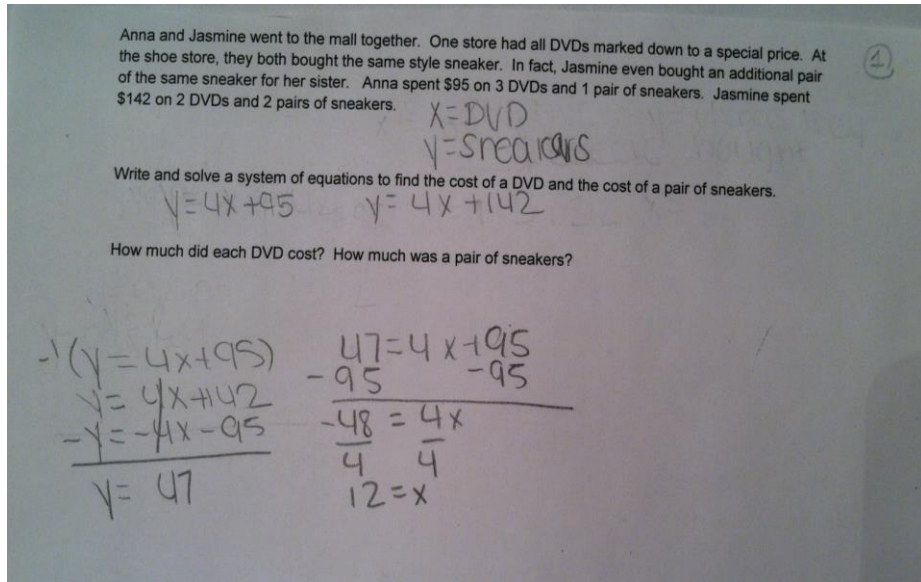 Anna and Jasmine went to the mall together. One store had all DVDs marked down to a special price. At
the shoe store, they both bought the same style sneaker. In fact, Jasmine even bought an additional pair
of the same sneaker for her sister. Anna spent $95 on 3 DVDs and 1 pair of sneakers. Jasmine spent
$142 on 2 DVDs and 2 pairs of sneakers.
1
X=DVD
y=sneakers
Write and solve a system of equations to find the cost of a DVD and the cost of a pair of sneakers.
y=4x+95 y=4x+142
How much did each DVD cost? How much was a pair of sneakers?
-1(y=4x+95)
y=4x+142
-y=-4x-95
y=47
47=4x+95
-95 -95
-48=4x
4 4
12=x